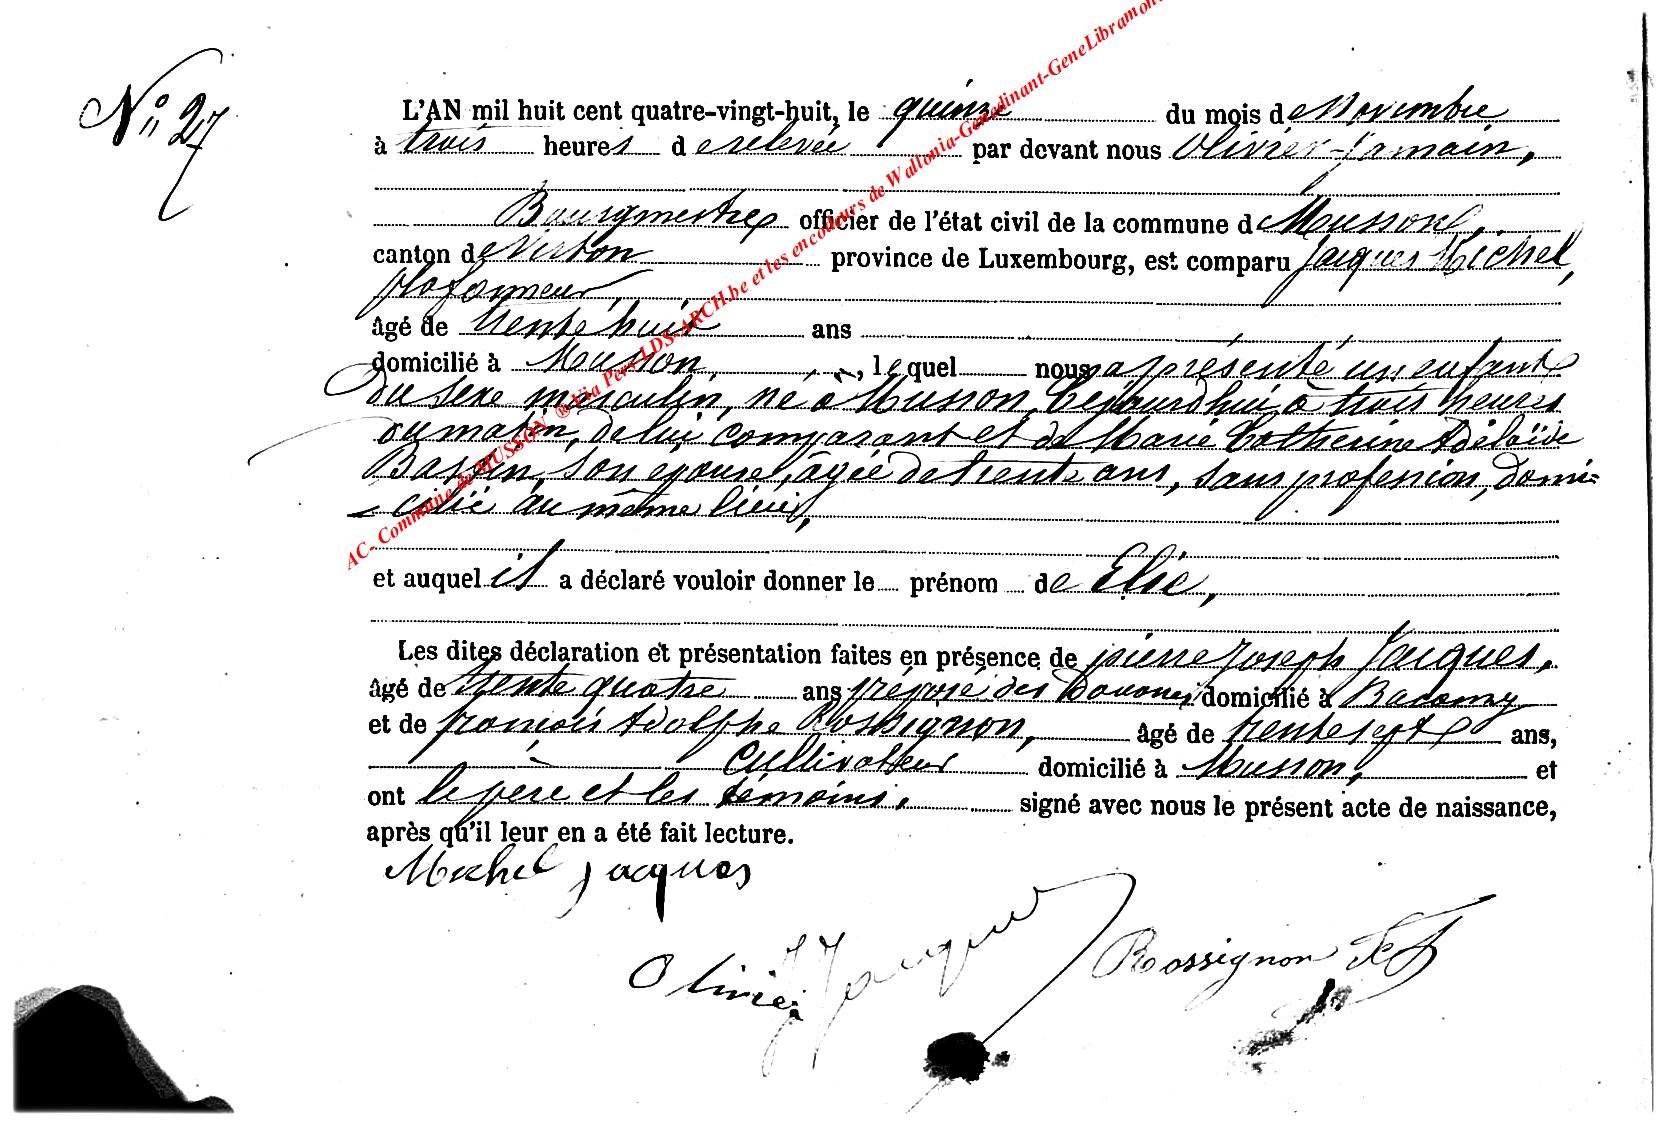 N° 27
L'AN mil huit cent quatre-vingt-huit, le quinze du mois de Novembre
à trois heures de relevée par devant nous Olivier Jamain,
Bourgmestre officier de l'état civil de la commune de Musson,
canton de Virton province de Luxembourg, est comparu Jacques Michel,
plafonneur,
âgé de trente huit ans
domicilié à Musson, , lequel nous a présenté un enfant
du sexe masculin, né à Musson, cejourd'hui à trois heures
du matin, de lui comparant et de Marie Catherine Adélaïde
Bassin, son épouse, âgée de trente ans, sans profession, domi-
cilié au même lieu,
et auquel il a déclaré vouloir donner le prénom de Elie,
Les dites déclaration et présentation faites en présence de pierre Joseph Jacques,
âgé de trente quatre ans préposé des Douanes domicilié à Baranzy
et de françois Adolphe Rossignon, âgé de trente sept ans,
cultivateur domicilié à Musson, et
ont le père et les témoins, signé avec nous le présent acte de naissance,
après qu'il leur en a été fait lecture.
Michel Jacques
Olivier
J Jacques
Rossignon
AC- Commune de MUSSON ® Via Pers-LDS-ARCH.be et les encodeurs de Wallonia-Genedinant-GeneLibramont